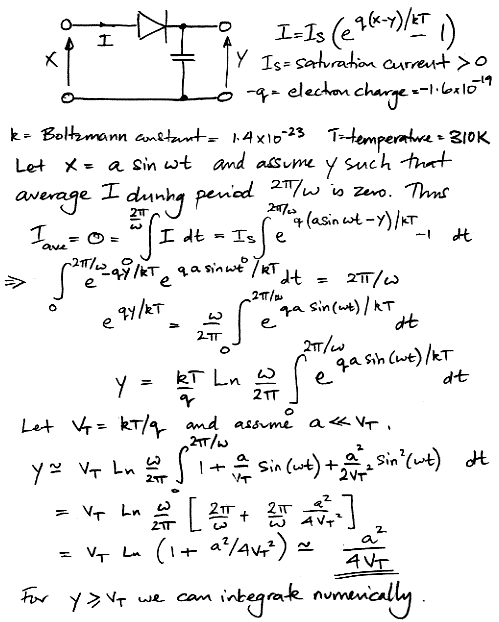 I
X
Y
I = Is (e^q(x-y)/kT - 1)
Is = saturation current > 0
-q = electron charge = -1.6x10^-19
k = Boltzmann constant = 1.4x10^-23 T = temperature = 310K
Let X = a sin ωt and assume y such that
average I during period 2π/ω is zero. Thus
I_ave = 0 = ∫_0^2π/ω I dt = Is ∫_0^2π/ω e^q(a sin ωt - y)/kT - 1 dt
⇒ ∫_0^2π/ω e^-qy/kT e^qa sin ωt/kT dt = 2π/ω
e^qy/kT = ω/2π ∫_0^2π/ω e^qa sin(ωt)/kT dt
y = kT/q Ln ω/2π ∫_0^2π/ω e^qa sin(ωt)/kT dt
Let V_T = kT/q and assume a << V_T.
y ≃ V_T Ln ω/2π ∫_0^2π/ω 1 + a/V_T sin(ωt) + a²/2V_T² sin²(ωt) dt
= V_T Ln ω/2π [2π/ω + 2π/ω a²/4V_T²]
= V_T Ln (1 + a²/4V_T²) ≃ a²/4V_T
For y ⩾ V_T we can integrate numerically.